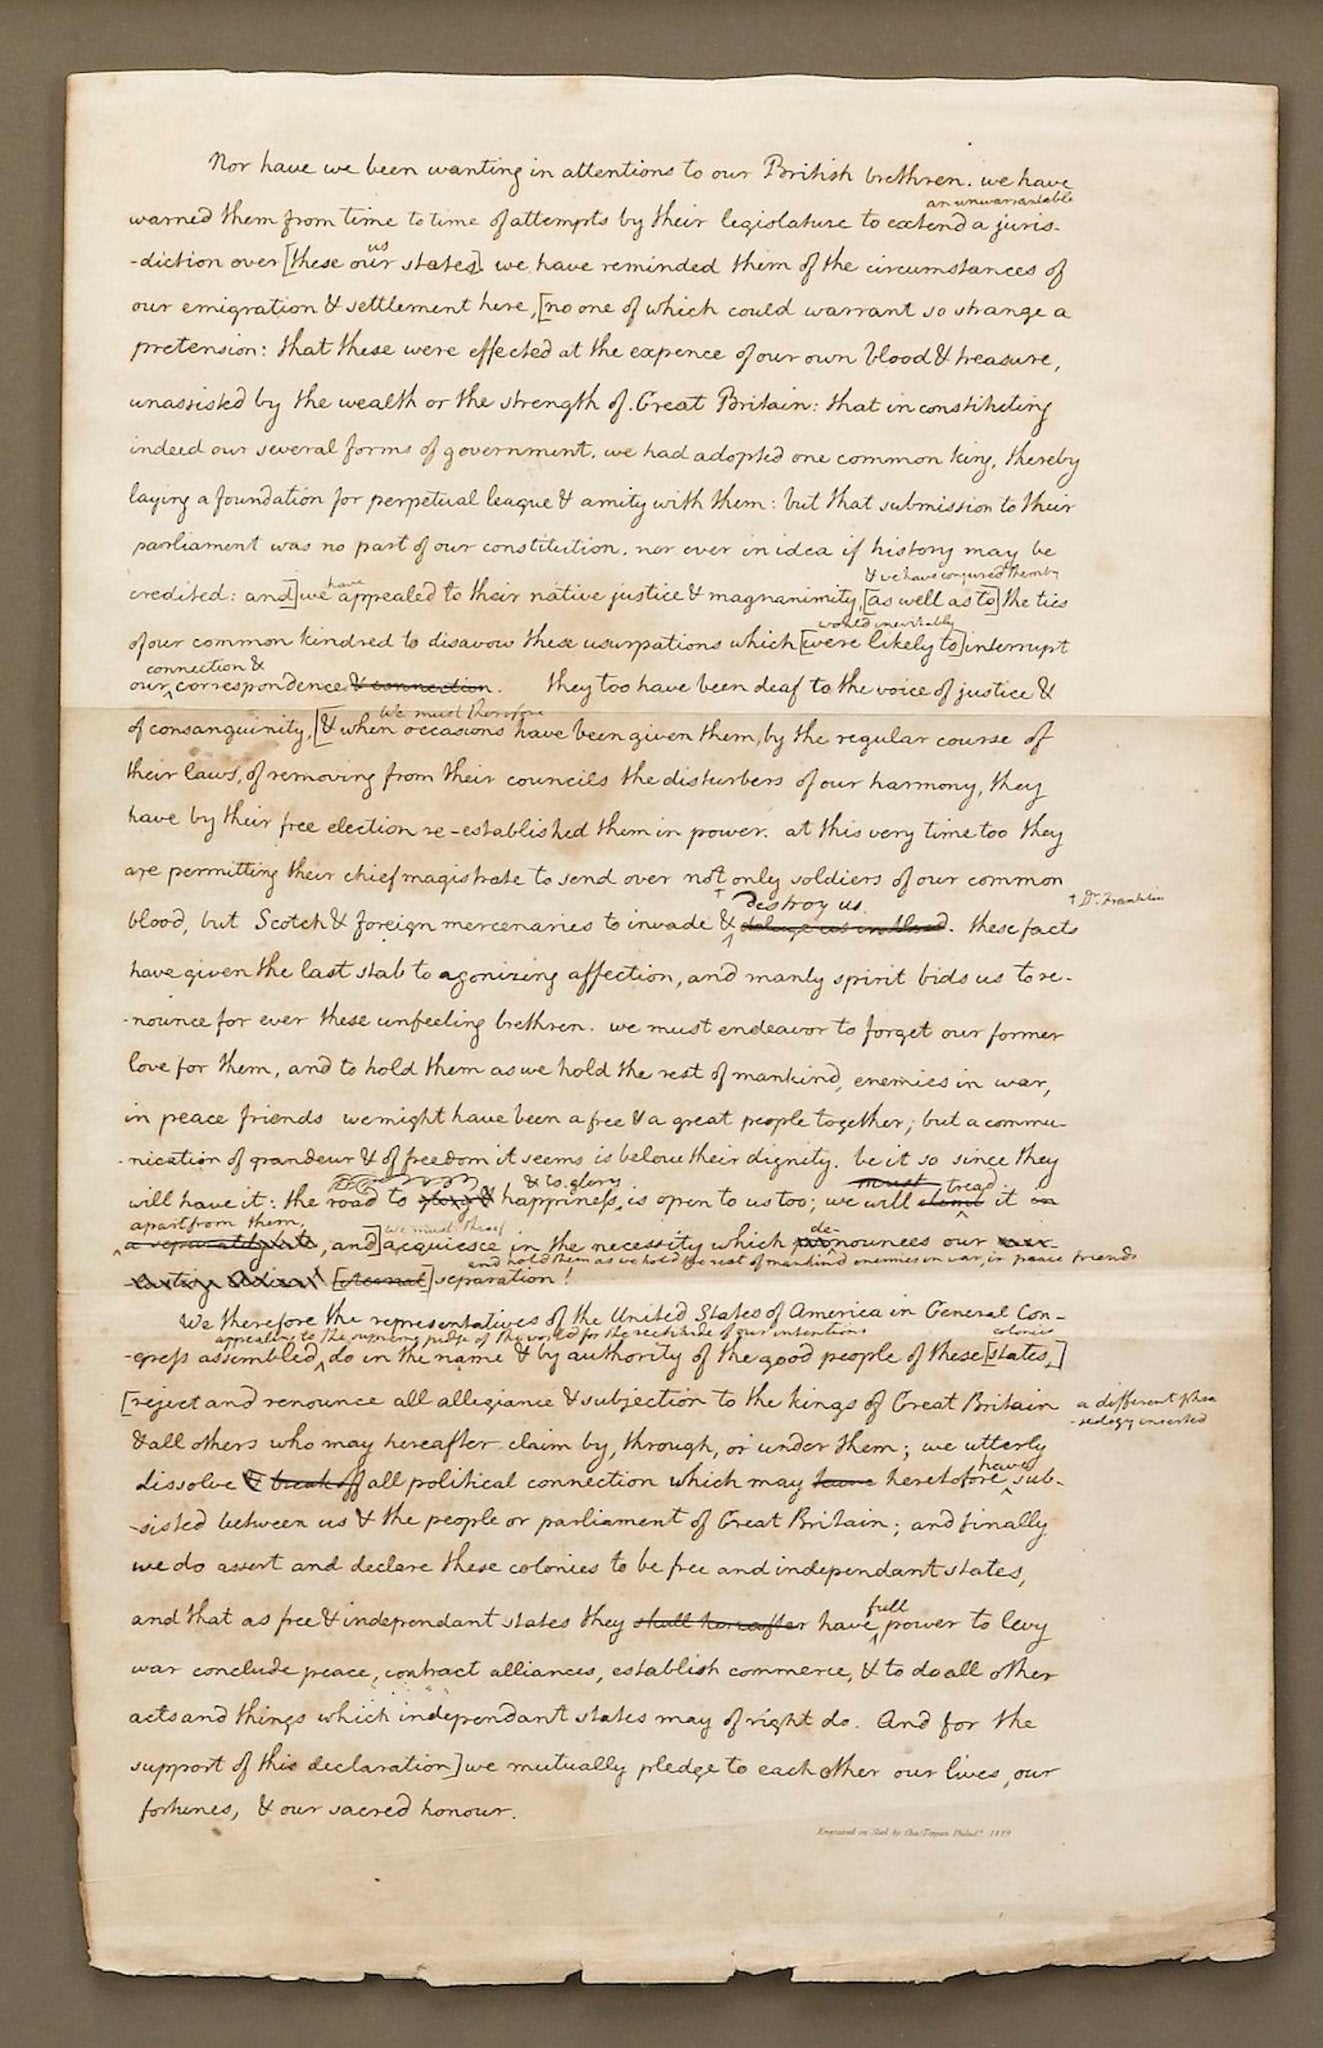 Nor have we been wanting in attentions to our British brethren. we have
an unwarrantable
warned them from time to time of attempts by their legislature to extend a juris-
us
-diction over [these our states]. we have reminded them of the circumstances of
our emigration & settlement here, [no one of which could warrant so strange a
pretension: that these were effected at the expence of our own blood & treasure,
unassisted by the wealth or the strength of Great Britain: that in constituting
indeed our several forms of government, we had adopted one common king, thereby
laying a foundation for perpetual league & amity with them: but that submission to their
parliament was no part of our constitution, nor ever in idea if history may be
have & we have conjured them by
credited: and] we appealed to their native justice & magnanimity, [as well as to] the ties
would inevitably
of our common kindred to disavow these usurpations which [were likely to] interrupt
connection &
our correspondence & connection. they too have been deaf to the voice of justice &
We must therefore
of consanguinity, [& when occasions have been given them, by the regular course of
their laws, of removing from their councils the disturbers of our harmony, they
have by their free election re-established them in power. at this very time too they
are permitting their chief magistrate to send over not only soldiers of our common
destroy us † Dr. Franklin
blood, but Scotch & foreign mercenaries to invade & deluge us in blood. these facts
have given the last stab to agonizing affection, and manly spirit bids us to re-
-nounce for ever these unfeeling brethren. we must endeavor to forget our former
love for them, and to hold them as we hold the rest of mankind, enemies in war,
in peace friends we might have been a free & a great people together; but a commu-
-nication of grandeur & of freedom it seems is below their dignity. be it so since they
& to glory must tread
will have it: the road to glory & happiness, is open to us too; we will climb it in
apart from them, we must therefore de-
a separately state, and] acquiesce in the necessity which pronounces our ever-
and hold them as we hold the rest of mankind enemies in war, in peace friends
-lasting Adieu! [eternal] separation!
We therefore the representatives of the United States of America in General Con-
appealing to the supreme judge of the world for the rectitude of our intentions colonies
-gress assembled, do in the name & by authority of the good people of these [states,]
[reject and renounce all allegiance & subjection to the kings of Great Britain a different phra
& all others who may hereafter claim by, through, or under them; we utterly -seology inserted
have
dissolve & break off all political connection which may have heretofore sub-
-sisted between us & the people or parliament of Great Britain; and finally
we do assert and declare these colonies to be free and independant states,
full
and that as free & independant states they shall hereafter have power to levy
war conclude peace, contract alliances, establish commerce, & to do all other
acts and things which independant states may of right do. And for the
support of this declaration] we mutually pledge to each other our lives, our
fortunes, & our sacred honour.
Engraved on Steel by Chas Toppan Philada. 1829